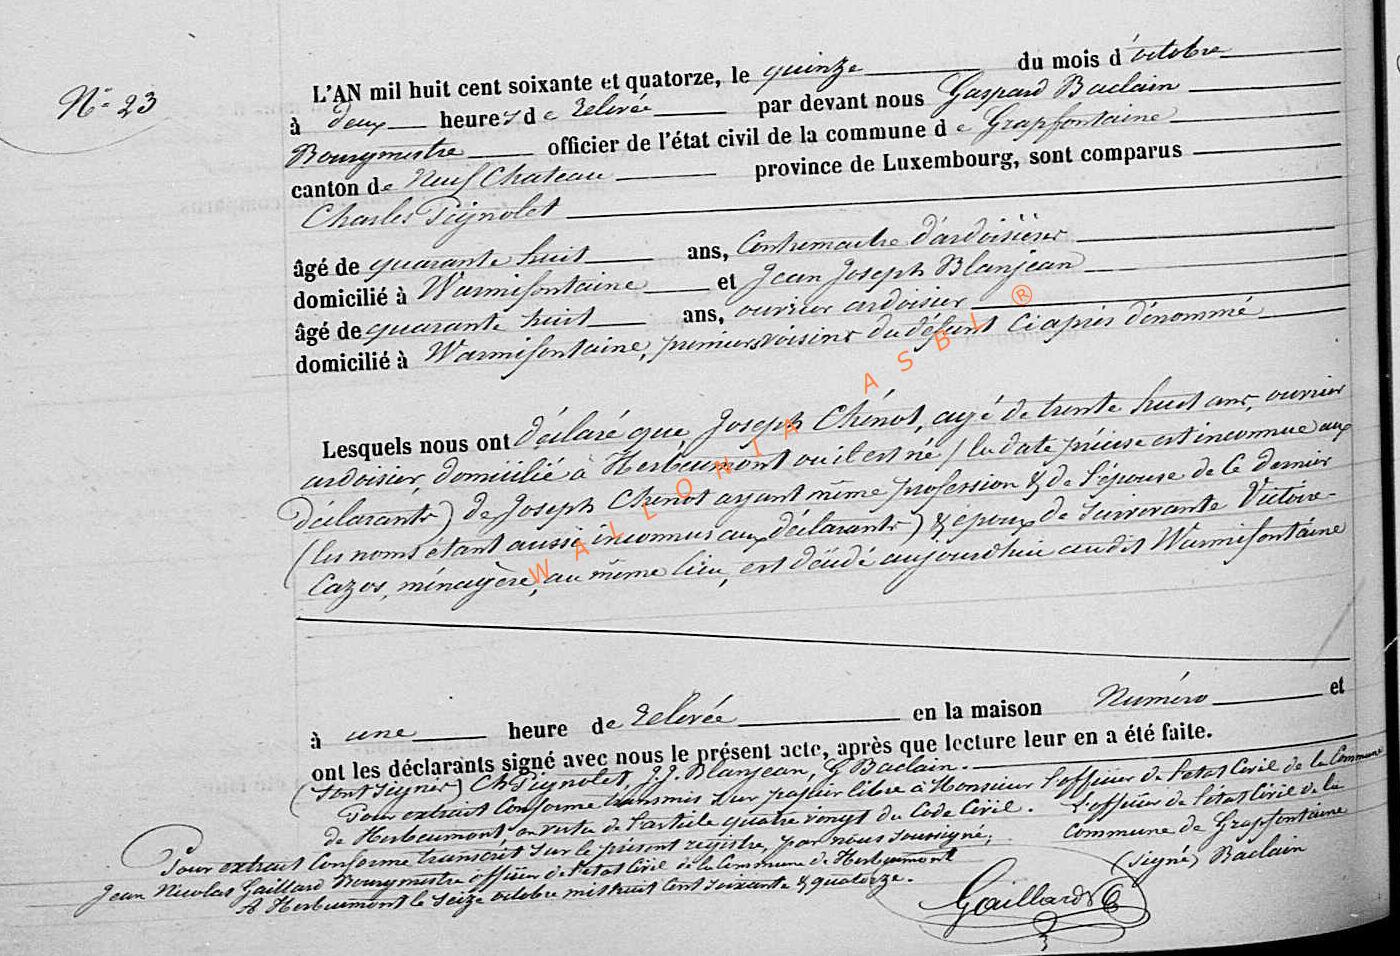 N° 23
L'AN mil huit cent soixante et quatorze, le quinze du mois d'octobre
à deux heures de relevée par devant nous Gaspard Baclain
Bourgmestre officier de l'état civil de la commune de Grapfontaine
canton de Neuf Chateau province de Luxembourg, sont comparus
Charles Pignolet
âgé de quarante huit ans, Contremaitre d'ardoisières
domicilié à Warmifontaine et Jean Joseph Blanjean
âgé de quarante huit ans, ouvrier ardoisier
domicilié à Warmifontaine, premiers voisins du défunt ci après dénommé
Lesquels nous ont déclaré que Joseph Chénot, agé de trente huit ans, ouvrier
ardoisier domicilié à Herbeumont où il est né (la date précise est inconnue aux
déclarants) de Joseph Chenot ayant même profession & de l'épouse de ce dernier
(les noms étant aussi inconnus aux déclarants) & époux de survivante Victoire
Cazos, ménagère, au même lieu, est décédé aujourd'hui audit Warmifontaine
à une heure de relevée en la maison Numéro et
ont les déclarants signé avec nous le présent acte, après que lecture leur en a été faite.
(sont signés) Ch Pignolet, J.J. Blanjean, G Baclain.
Pour extrait conforme transmis sur papier libre à Monsieur l'officier de l'état Civil de la Commune
de Herbeumont en vertu de l'article quatre vingt du Code Civil. L'officier de l'état Civil de la
commune de Grapfontaine
(signé) Baclain
Pour extrait conforme transcrit sur le présent registre, par nous soussigné,
Jean Nicolas Gaillard Bourgmestre officier de l'état Civil de la Commune de Herbeumont
A Herbeumont le seize octobre mil huit cent soixante & quatorze.
Gaillard
WALLONIA ASBL ®